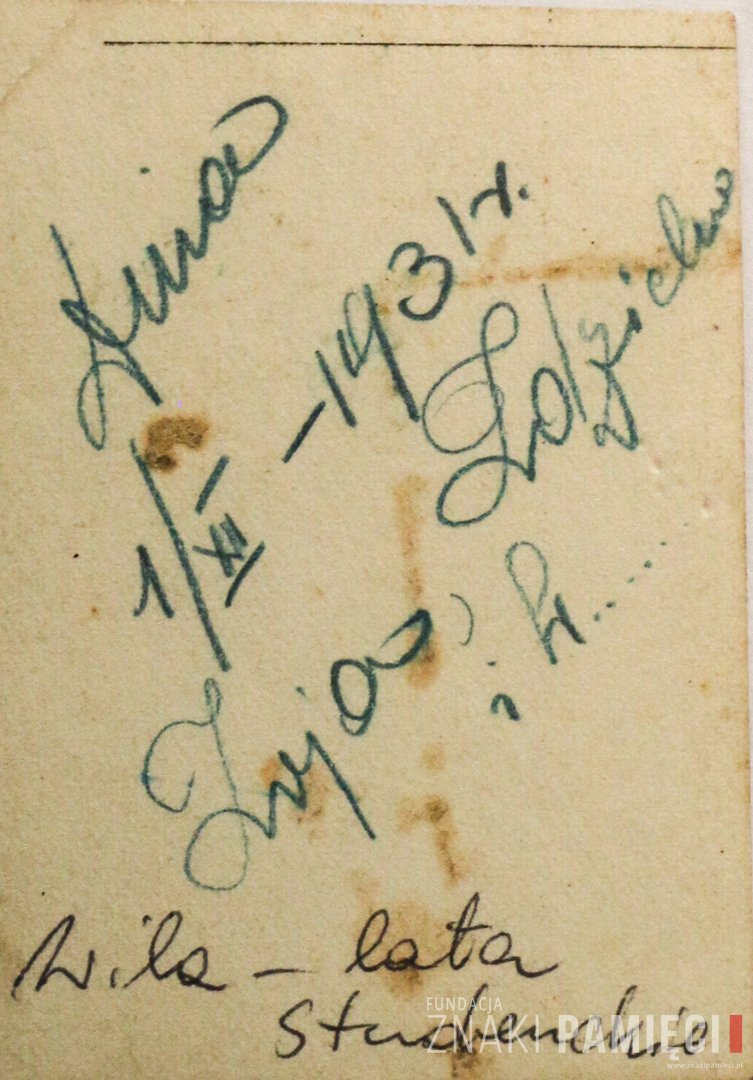 1/XII - 1931 r.
Zdzicho
i W.....
Wila - lata
studenckie
FUNDACJA
ZNAKI PAMIĘCI
www.znakipamieci.pl